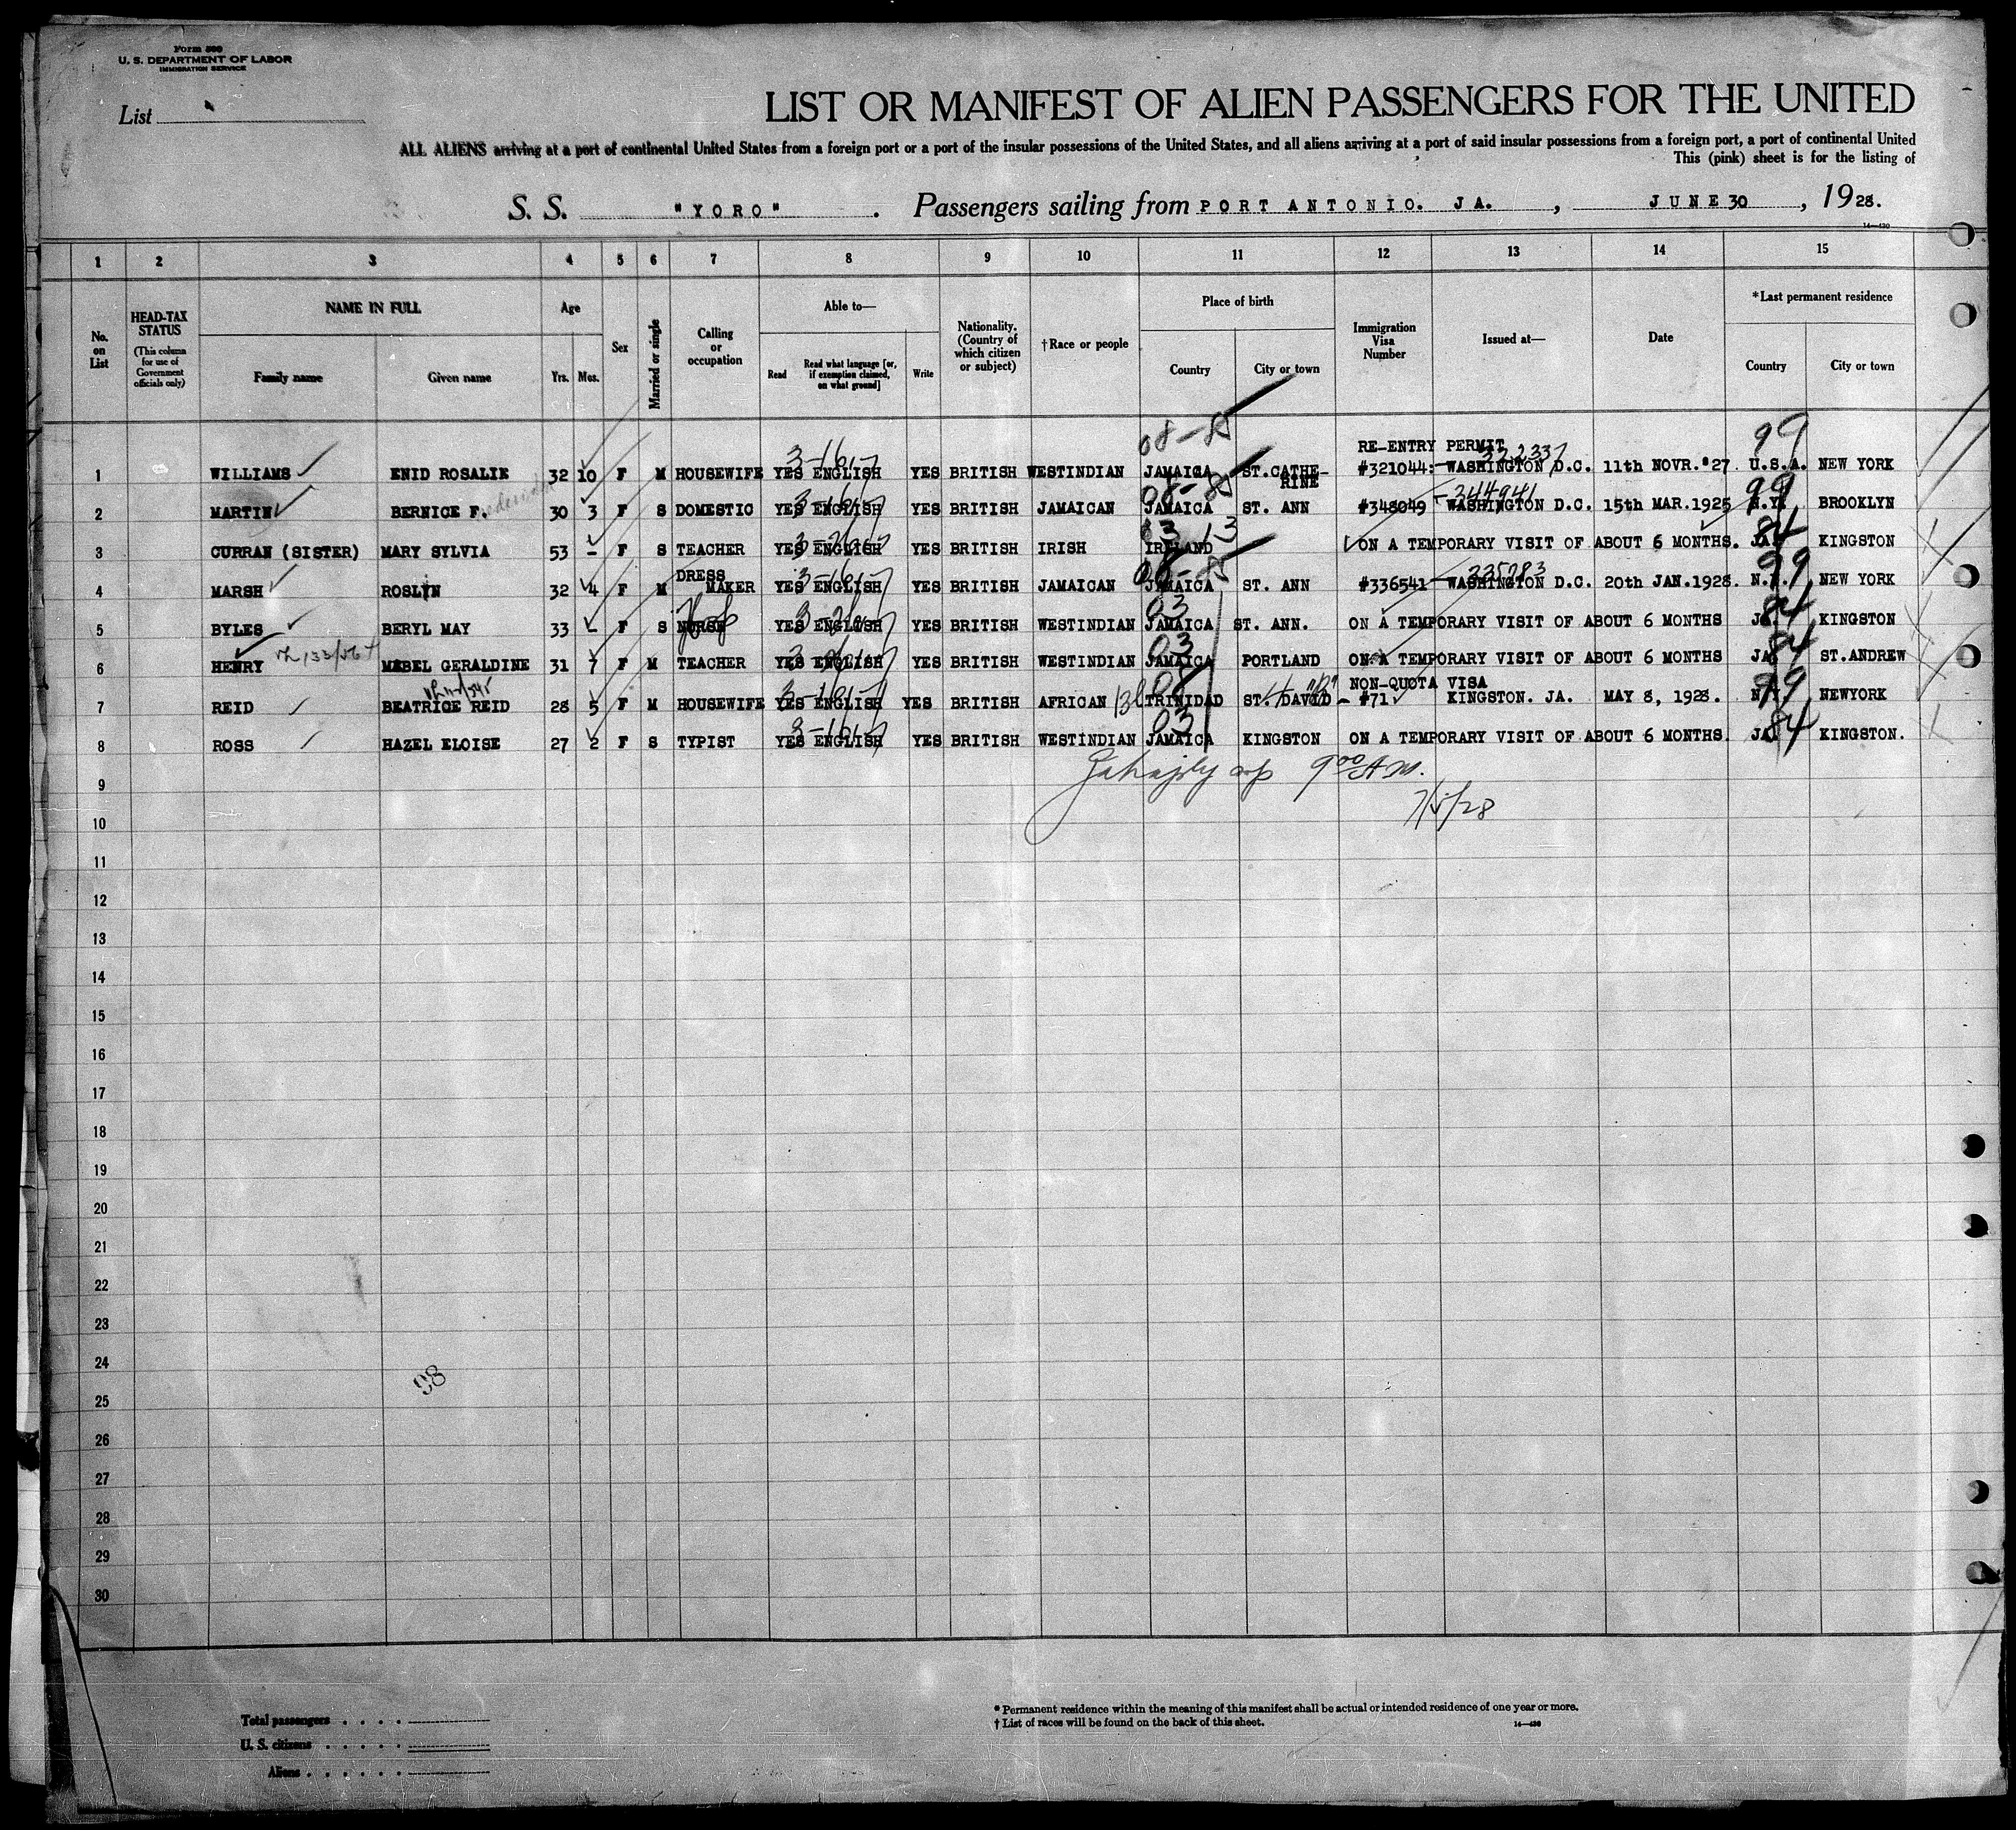 Form 500
U. S. DEPARTMENT OF LABOR
IMMIGRATION SERVICE
List
LIST OR MANIFEST OF ALIEN PASSENGERS FOR THE UNITED
ALL ALIENS arriving at a port of continental United States from a foreign port or a port of the insular possessions of the United States, and all aliens arriving at a port of said insular possessions from a foreign port, a port of continental United
This (pink) sheet is for the listing of
S. S. "YORO" . Passengers sailing from PORT ANTONIO. JA. , JUNE 30 , 1928.
14—430
1 2 3 4 5 6 7 8 9 10 11 12 13 14 15
No. on List
HEAD-TAX STATUS (This column for use of Government officials only)
NAME IN FULL
Family name Given name
Age
Yrs. Mos.
Sex
Married or single
Calling or occupation
Able to—
Read Read what language [or, if exemption claimed, on what ground] Write
Nationality. (Country of which citizen or subject)
†Race or people
Place of birth
Country City or town
Immigration Visa Number
Issued at—
Date
*Last permanent residence
Country City or town
08-85 99
RE-ENTRY PERMIT
3-16-17 322337
1 WILLIAMS ENID ROSALIE 32 10 F M HOUSEWIFE YES ENGLISH YES BRITISH WESTINDIAN JAMAICA ST.CATHE-RINE #321044:- WASHINGTON D.C. 11th NOVR.'27. U.S.A. NEW YORK
08-85 344941 99
2 MARTIN BERNICE F. 30 3 F S DOMESTIC YES ENGLISH YES BRITISH JAMAICAN JAMAICA ST. ANN #348049 - WASHINGTON D.C. 15th MAR.1925 N.Y. BROOKLYN
03 13 84
3 CURRAN (SISTER) MARY SYLVIA 53 - F S TEACHER YES ENGLISH YES BRITISH IRISH IRELAND ON A TEMPORARY VISIT OF ABOUT 6 MONTHS. JA. KINGSTON
08-85 335283 99
4 MARSH ROSLYN 32 4 F M DRESS MAKER YES ENGLISH YES BRITISH JAMAICAN JAMAICA ST. ANN #336541 - WASHINGTON D.C. 20th JAN.1928. N.Y. NEW YORK
03 84
5 BYLES BERYL MAY 33 - F S NURSE YES ENGLISH YES BRITISH WESTINDIAN JAMAICA ST. ANN. ON A TEMPORARY VISIT OF ABOUT 6 MONTHS JA. KINGSTON
03 84
6 HENRY MABEL GERALDINE 31 7 F M TEACHER YES ENGLISH YES BRITISH WESTINDIAN JAMAICA PORTLAND ON A TEMPORARY VISIT OF ABOUT 6 MONTHS JA. ST.ANDREW
08 99
NON-QUOTA VISA
7 REID BEATRICE REID 28 5 F M HOUSEWIFE YES ENGLISH YES BRITISH AFRICAN TRINIDAD ST. DAVID - #71 KINGSTON. JA. MAY 8, 1928. N.Y. NEWYORK
03 84
8 ROSS HAZEL ELOISE 27 2 F S TYPIST YES ENGLISH YES BRITISH WESTINDIAN JAMAICA KINGSTON ON A TEMPORARY VISIT OF ABOUT 6 MONTHS. JA. KINGSTON.
9 900 AM.
7/5/28
10
11
12
13
14
15
16
17
18
19
20
21
22
23
24
98
25
26
27
28
29
30
Total passengers . . . .
U. S. citizens . . . . .
Aliens . . . . . .
* Permanent residence within the meaning of this manifest shall be actual or intended residence of one year or more.
† List of races will be found on the back of this sheet.
14—430